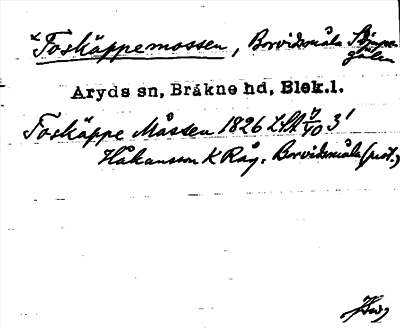 *Foskäppemossen, Borvidsmåla Stympe-
gölen
Aryds sn, Bräkne hd, Blek.l.
Foskäppe Måssen 1826 LSA 7/10 3'
Håkansson K Råg. Borvidsmåla (prot.)